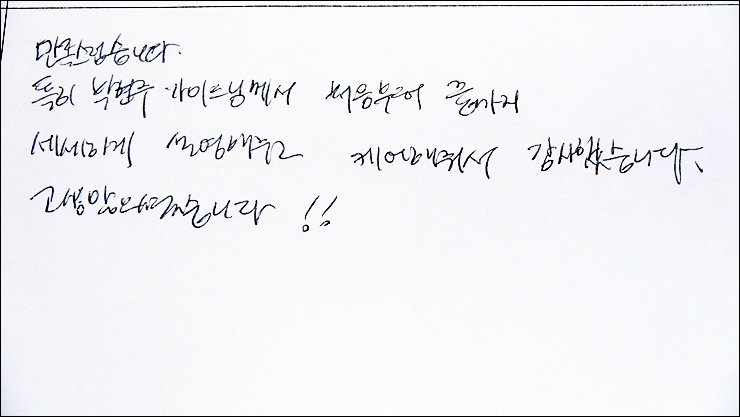 만족스럽습니다.
특히 박현주 가이드님께서 처음부터 끝까지
세세하게 설명해주고 케어해줘서 감사했습니다.
고생많으셨습니다 !!